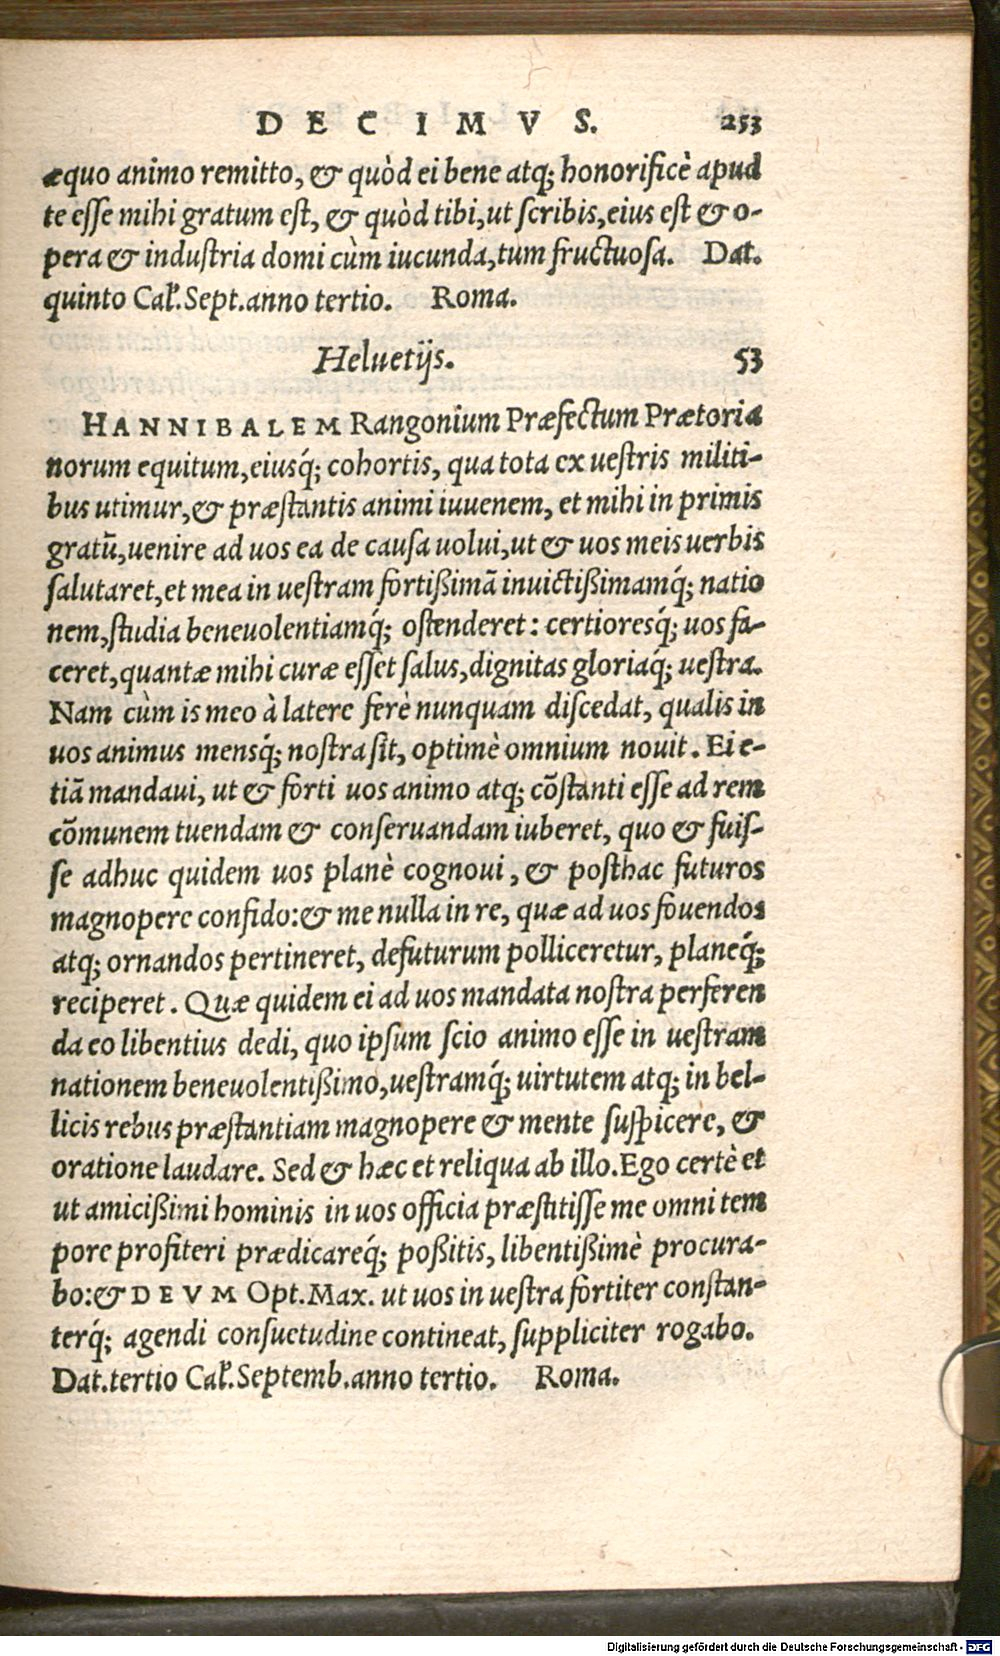 DECIMVS. 253
æquo animo remitto, & quòd ei bene atq; honorificè apud
te esse mihi gratum est, & quòd tibi, ut scribis, eius est & o-
pera & industria domi cùm iucunda, tum fructuosa. Dat.
quinto Cal. Sept. anno tertio. Roma.
Heluetijs. 53
HANNIBALEM Rangonium Præfectum Prætoria
norum equitum, eiusq́; cohortis, qua tota ex uestris militi-
bus utimur, & præstantis animi iuuenem, et mihi in primis
gratũ, uenire ad uos ea de causa uolui, ut & uos meis uerbis
salutaret, et mea in uestram fortißimã inuictißimamq́; natio
nem, studia beneuolentiamq́; ostenderet: certioresq́; uos fa-
ceret, quantæ mihi curæ esset salus, dignitas gloriaq́; uestra.
Nam cùm is meo à latere ferè nunquam discedat, qualis in
uos animus mensq́; nostra sit, optimè omnium nouit. Ei e-
tiã mandaui, ut & forti uos animo atq; cõstanti esse ad rem
cõmunem tuendam & conseruandam iuberet, quo & fuis-
se adhuc quidem uos planè cognoui, & posthac futuros
magnopere confido: & me nulla in re, quæ ad uos fouendos
atq; ornandos pertineret, defuturum polliceretur, planeq́;
reciperet. Quæ quidem ei ad uos mandata nostra perferen
da eo libentius dedi, quo ipsum scio animo esse in uestram
nationem beneuolentißimo, uestramq́; uirtutem atq; in bel-
licis rebus præstantiam magnopere & mente suspicere, &
oratione laudare. Sed & hæc et reliqua ab illo. Ego certè et
ut amicißimi hominis in uos officia præstitisse me omni tem
pore profiteri prædicareq́; poßitis, libentißimè procura-
bo: & DEVM Opt. Max. ut uos in uestra fortiter constan-
terq́; agendi consuetudine contineat, suppliciter rogabo.
Dat. tertio Cal. Septemb. anno tertio. Roma.
Digitalisierung gefördert durch die Deutsche Forschungsgemeinschaft - DFG